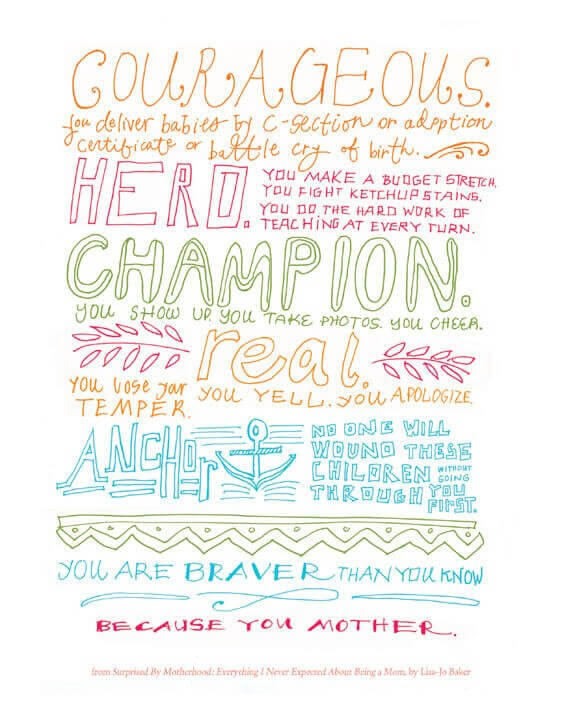 COURAGEOUS.
You deliver babies by C-section or adoption
certificate or battle cry of birth.
HERO.
YOU MAKE A BUDGET STRETCH.
YOU FIGHT KETCHUP STAINS.
YOU DO THE HARD WORK OF
TEACHING AT EVERY TURN.
CHAMPION.
YOU SHOW UP. YOU TAKE PHOTOS. YOU CHEER.
real.
YOU LOSE your
TEMPER.
YOU YELL. YOU APOLOGIZE.
ANCHOr
NO ONE WILL
WOUND THESE
CHILDREN WITHOUT GOING
THROUGH YOU FIRST.
YOU ARE BRAVER THAN YOU KNOW
BECAUSE YOU MOTHER.
from Surprised By Motherhood: Everything I Never Expected About Being a Mom, by Lisa-Jo Baker